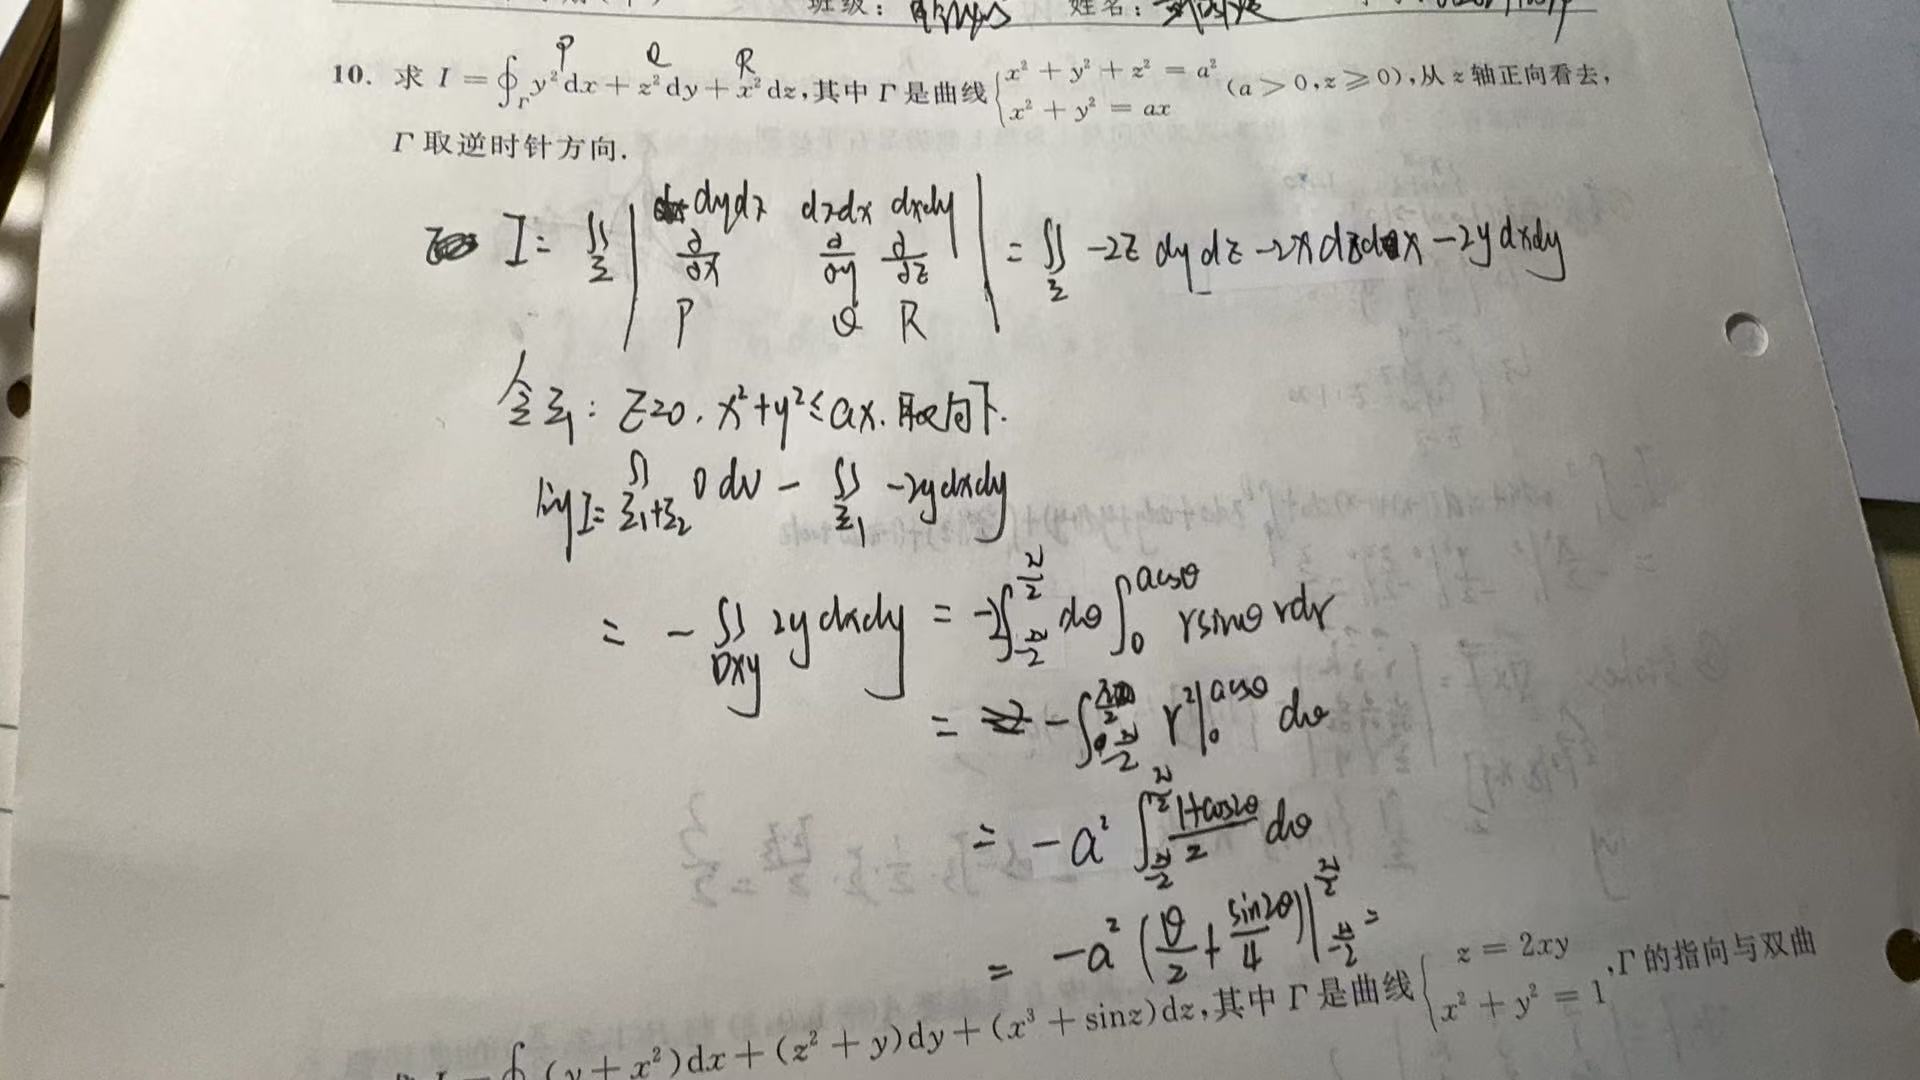 班级： 姓名：
10. 求 I = ∮_Γ y²dx + z²dy + x²dz,其中 Γ 是曲线 { x² + y² + z² = a² ; x² + y² = ax (a > 0, z ≥ 0),从 z 轴正向看去,
P Q R
Γ 取逆时针方向.
I = ∬_Σ | dydz dzdx dxdy ; ∂/∂x ∂/∂y ∂/∂z ; P Q R | = ∬_Σ -2z dydz -2x dzdx -2y dxdy
令Σ₁: z=0. x²+y²≤ax. 取向下.
I = ∯_{Σ₁+Σ₂} 0 dv - ∬_{Σ₁} -2y dxdy
= - ∬_{Dxy} 2y dxdy = -2∫_{-π/2}^{π/2} dθ ∫_0^{acosθ} r sinθ rdr
= - ∫_{-π/2}^{π/2} r²|_0^{acosθ} dθ
= -a² ∫_{-π/2}^{π/2} (1+cos2θ)/2 dθ
= -a² (θ/2 + sin2θ/4)|_{-π/2}^{π/2} =
∮ (y + x²)dx + (z² + y)dy + (x³ + sinz)dz,其中 Γ 是曲线 { z = 2xy ; x² + y² = 1 ,Γ 的指向与双曲